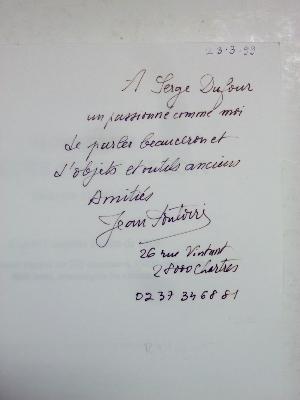 23-3-99
A Serge Dufour
un passionné comme moi
de parler beauceron et
d'objets et outils anciens
Amitiés
Jean
26 rue
28000 Chartres
02 37 34 68 81